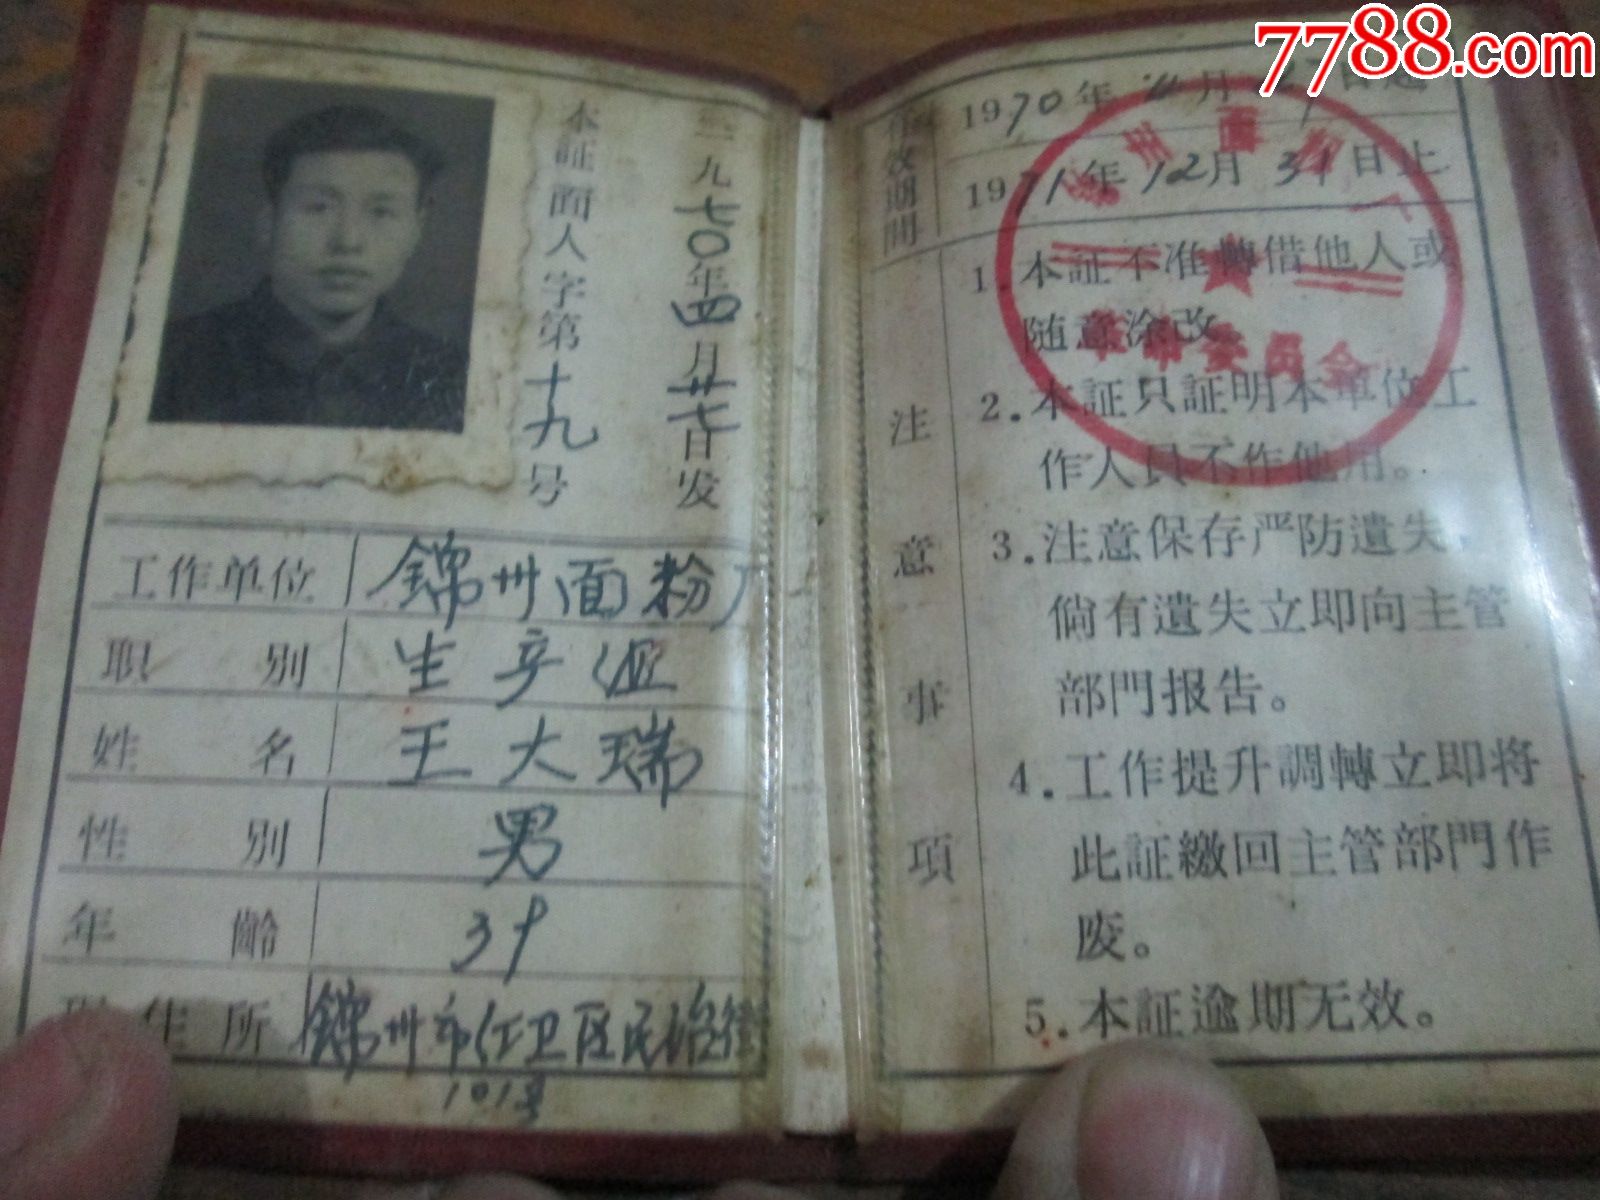 7788.com
一九七〇年四月廿七日发
本証面人字第十九号
工作单位 錦州面粉厂
职别 生产组
姓名 王大瑞
性别 男
年齡 39
住所 錦州市红卫区民治街
101号
有效期間
1970年 月
1971年12月31日止
州面粉厂
革命委员会
注意事項
1. 本証不准轉借他人或
随意涂改。
2. 本証只証明本单位工
作人員不作他用。
3. 注意保存严防遺失,
倘有遺失立即向主管
部門报告。
4. 工作提升調轉立即将
此証繳回主管部門作
废。
5. 本証逾期无效。